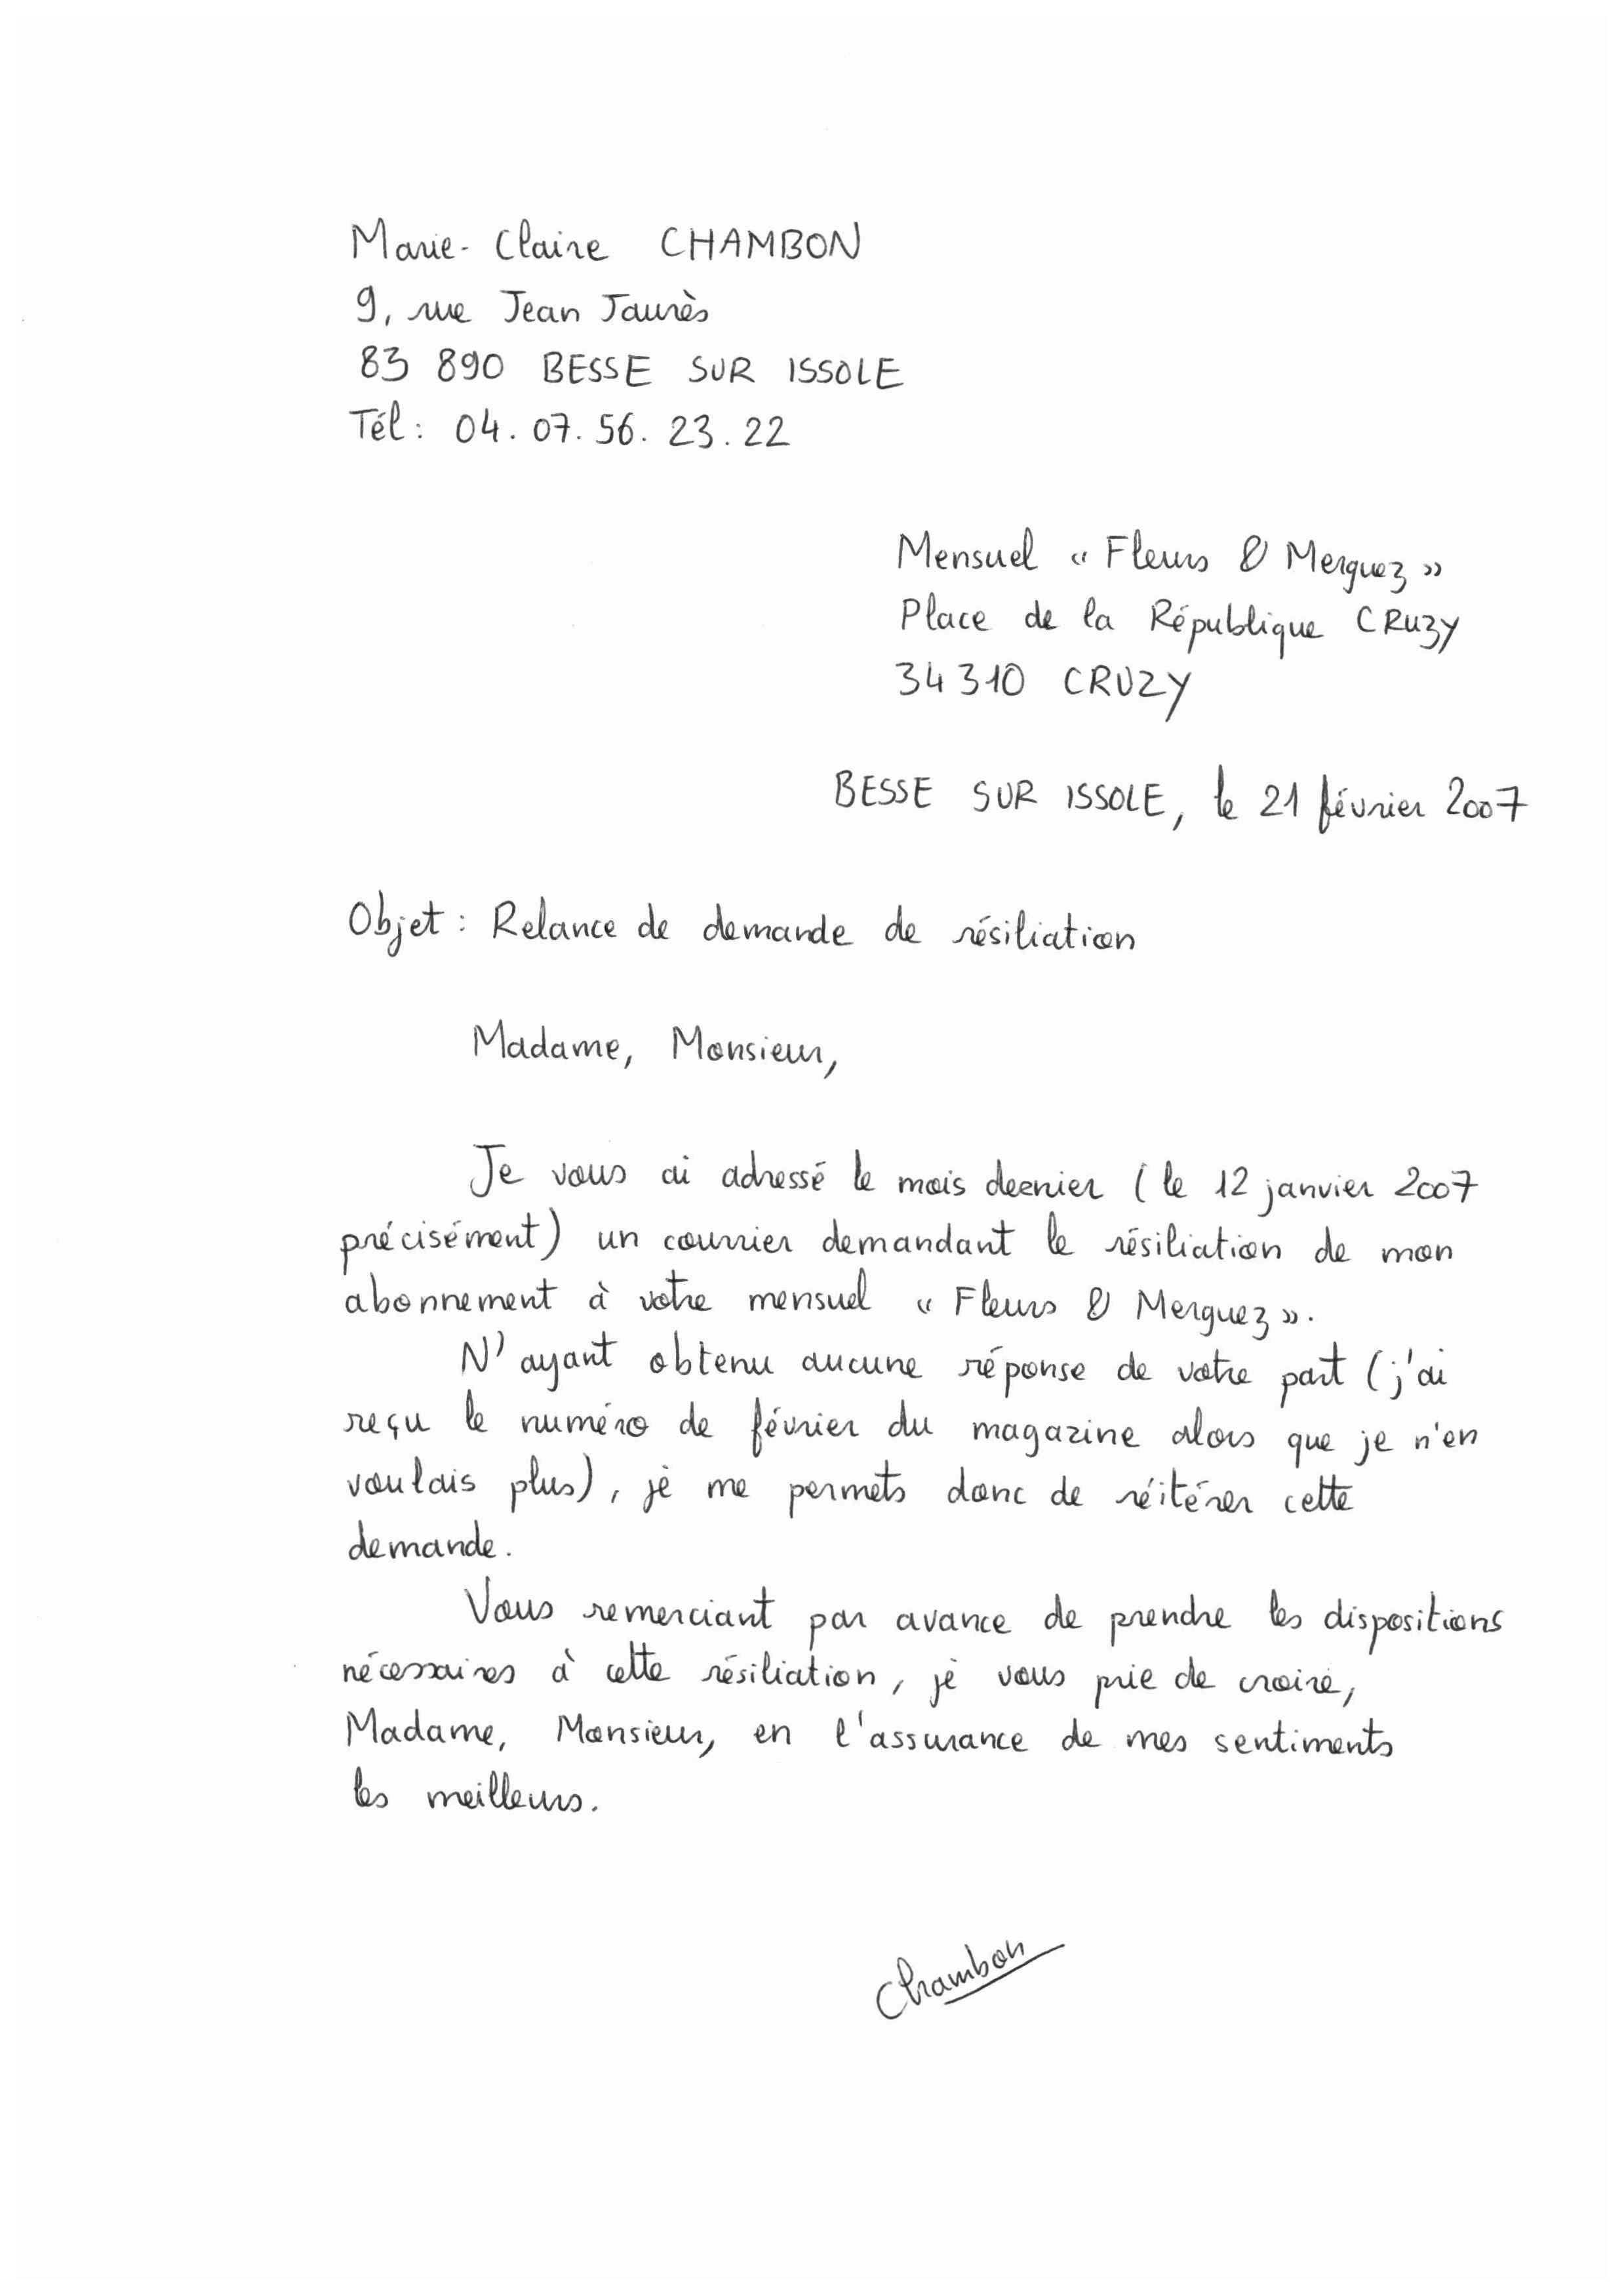 Marie-Claire CHAMBON
9, rue Jean Jaurès
83 890 BESSE SUR ISSOLE
Tél : 04. 07. 56. 23. 22
Mensuel « Fleurs & Merguez »
Place de la République CRUZY
34 310 CRUZY
BESSE SUR ISSOLE, le 21 février 2007
Objet : Relance de demande de résiliation
Madame, Monsieur,
Je vous ai adressé le mois dernier ( le 12 janvier 2007
précisément) un courrier demandant le résiliation de mon
abonnement à votre mensuel « Fleurs & Merguez ».
N'ayant obtenu aucune réponse de votre part (j'ai
reçu le numéro de février du magazine alors que je n'en
voulais plus), je me permets donc de réitérer cette
demande.
Vous remerciant par avance de prendre les dispositions
nécessaires à cette résiliation, je vous prie de croire,
Madame, Monsieur, en l'assurance de mes sentiments
les meilleurs.
Chambon